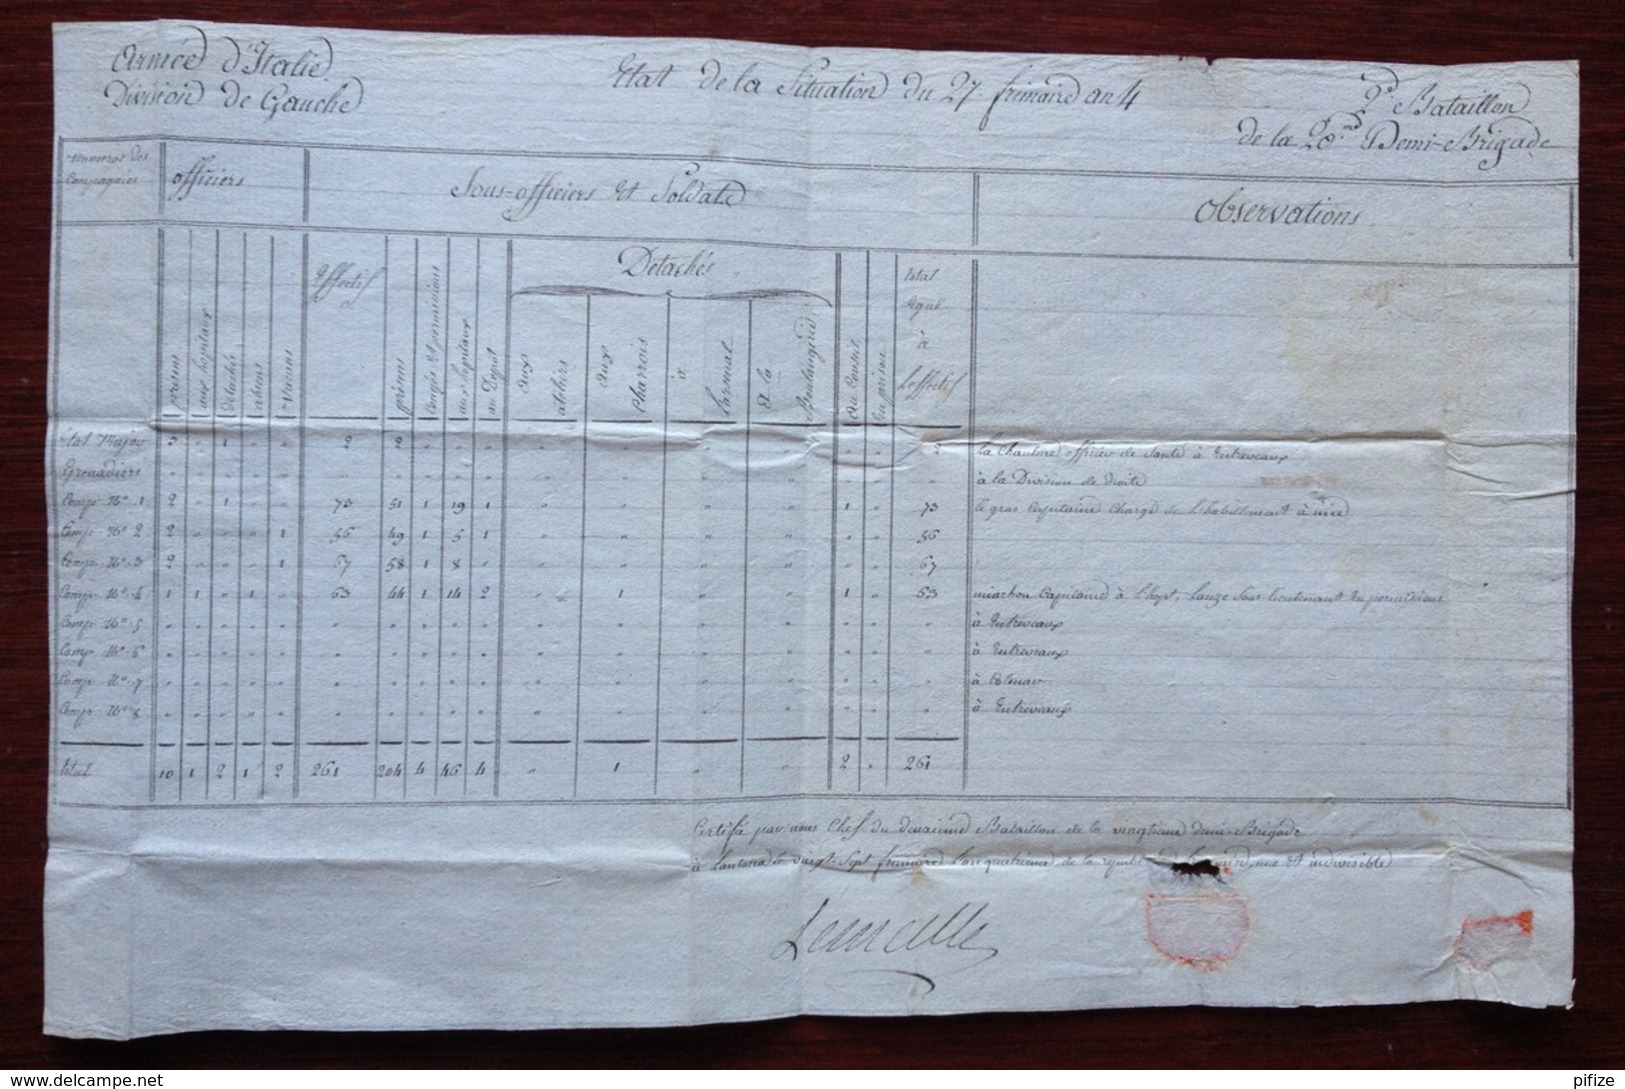 Armée d'Italie
Division de Gauche
Etat de la Situation du 27 frimaire an 4
2d Bataillon
de la 20.me Demi-Brigade
Numeros des Compagnies
officiers
Sous-officiers et Soldats
Observations
présens
aux hopitaux
détachés
absens
Vacans
Effectif
présens
Congés et permissions
aux hopitaux
au Depot
Detachés
aux ateliers
aux Charrois
à l'arsenal
et à la Boulangerie
En prison
total egal à l'effectif
Etat Major 3 " 1 " " 2 2 " " " " " " " " " 2 officier de Santé à Entrevaux
Grenadiers " " " " " " " " " " " " " " " " " à la Division de droite
Comp. No. 1 2 " 1 " " 73 51 1 19 1 " " " " 1 " 73 le gras Capitaine Chargé de l'habillement à nice
Comp. No. 2 2 " " " 1 56 49 1 5 1 " " " " " " 56
Comp. No. 3 2 " " " 1 67 58 1 8 " " " " " " " 67
Comp. No. 4 1 1 " 1 " 63 44 1 14 2 " 1 " " 1 " 63 miachon Capitaine à l'hopt, lauze Sous-lieutenant en permissions
Comp. No. 5 " " " " " " " " " " " " " " " " " à Entrevaux
Comp. No. 6 " " " " " " " " " " " " " " " " " à Entrevaux
Comp. No. 7 " " " " " " " " " " " " " " " " " à Colmar
Comp. No. 8 " " " " " " " " " " " " " " " " " à Entrevaux
total 10 1 2 1 2 261 204 4 46 4 " 1 " " 2 " 261
Certifié par nous Chef du deuxieme Bataillon de la vingtieme demi-Brigade
à le vingt-Sept frimaire l'an quatrieme de la une et indivisible
pifize